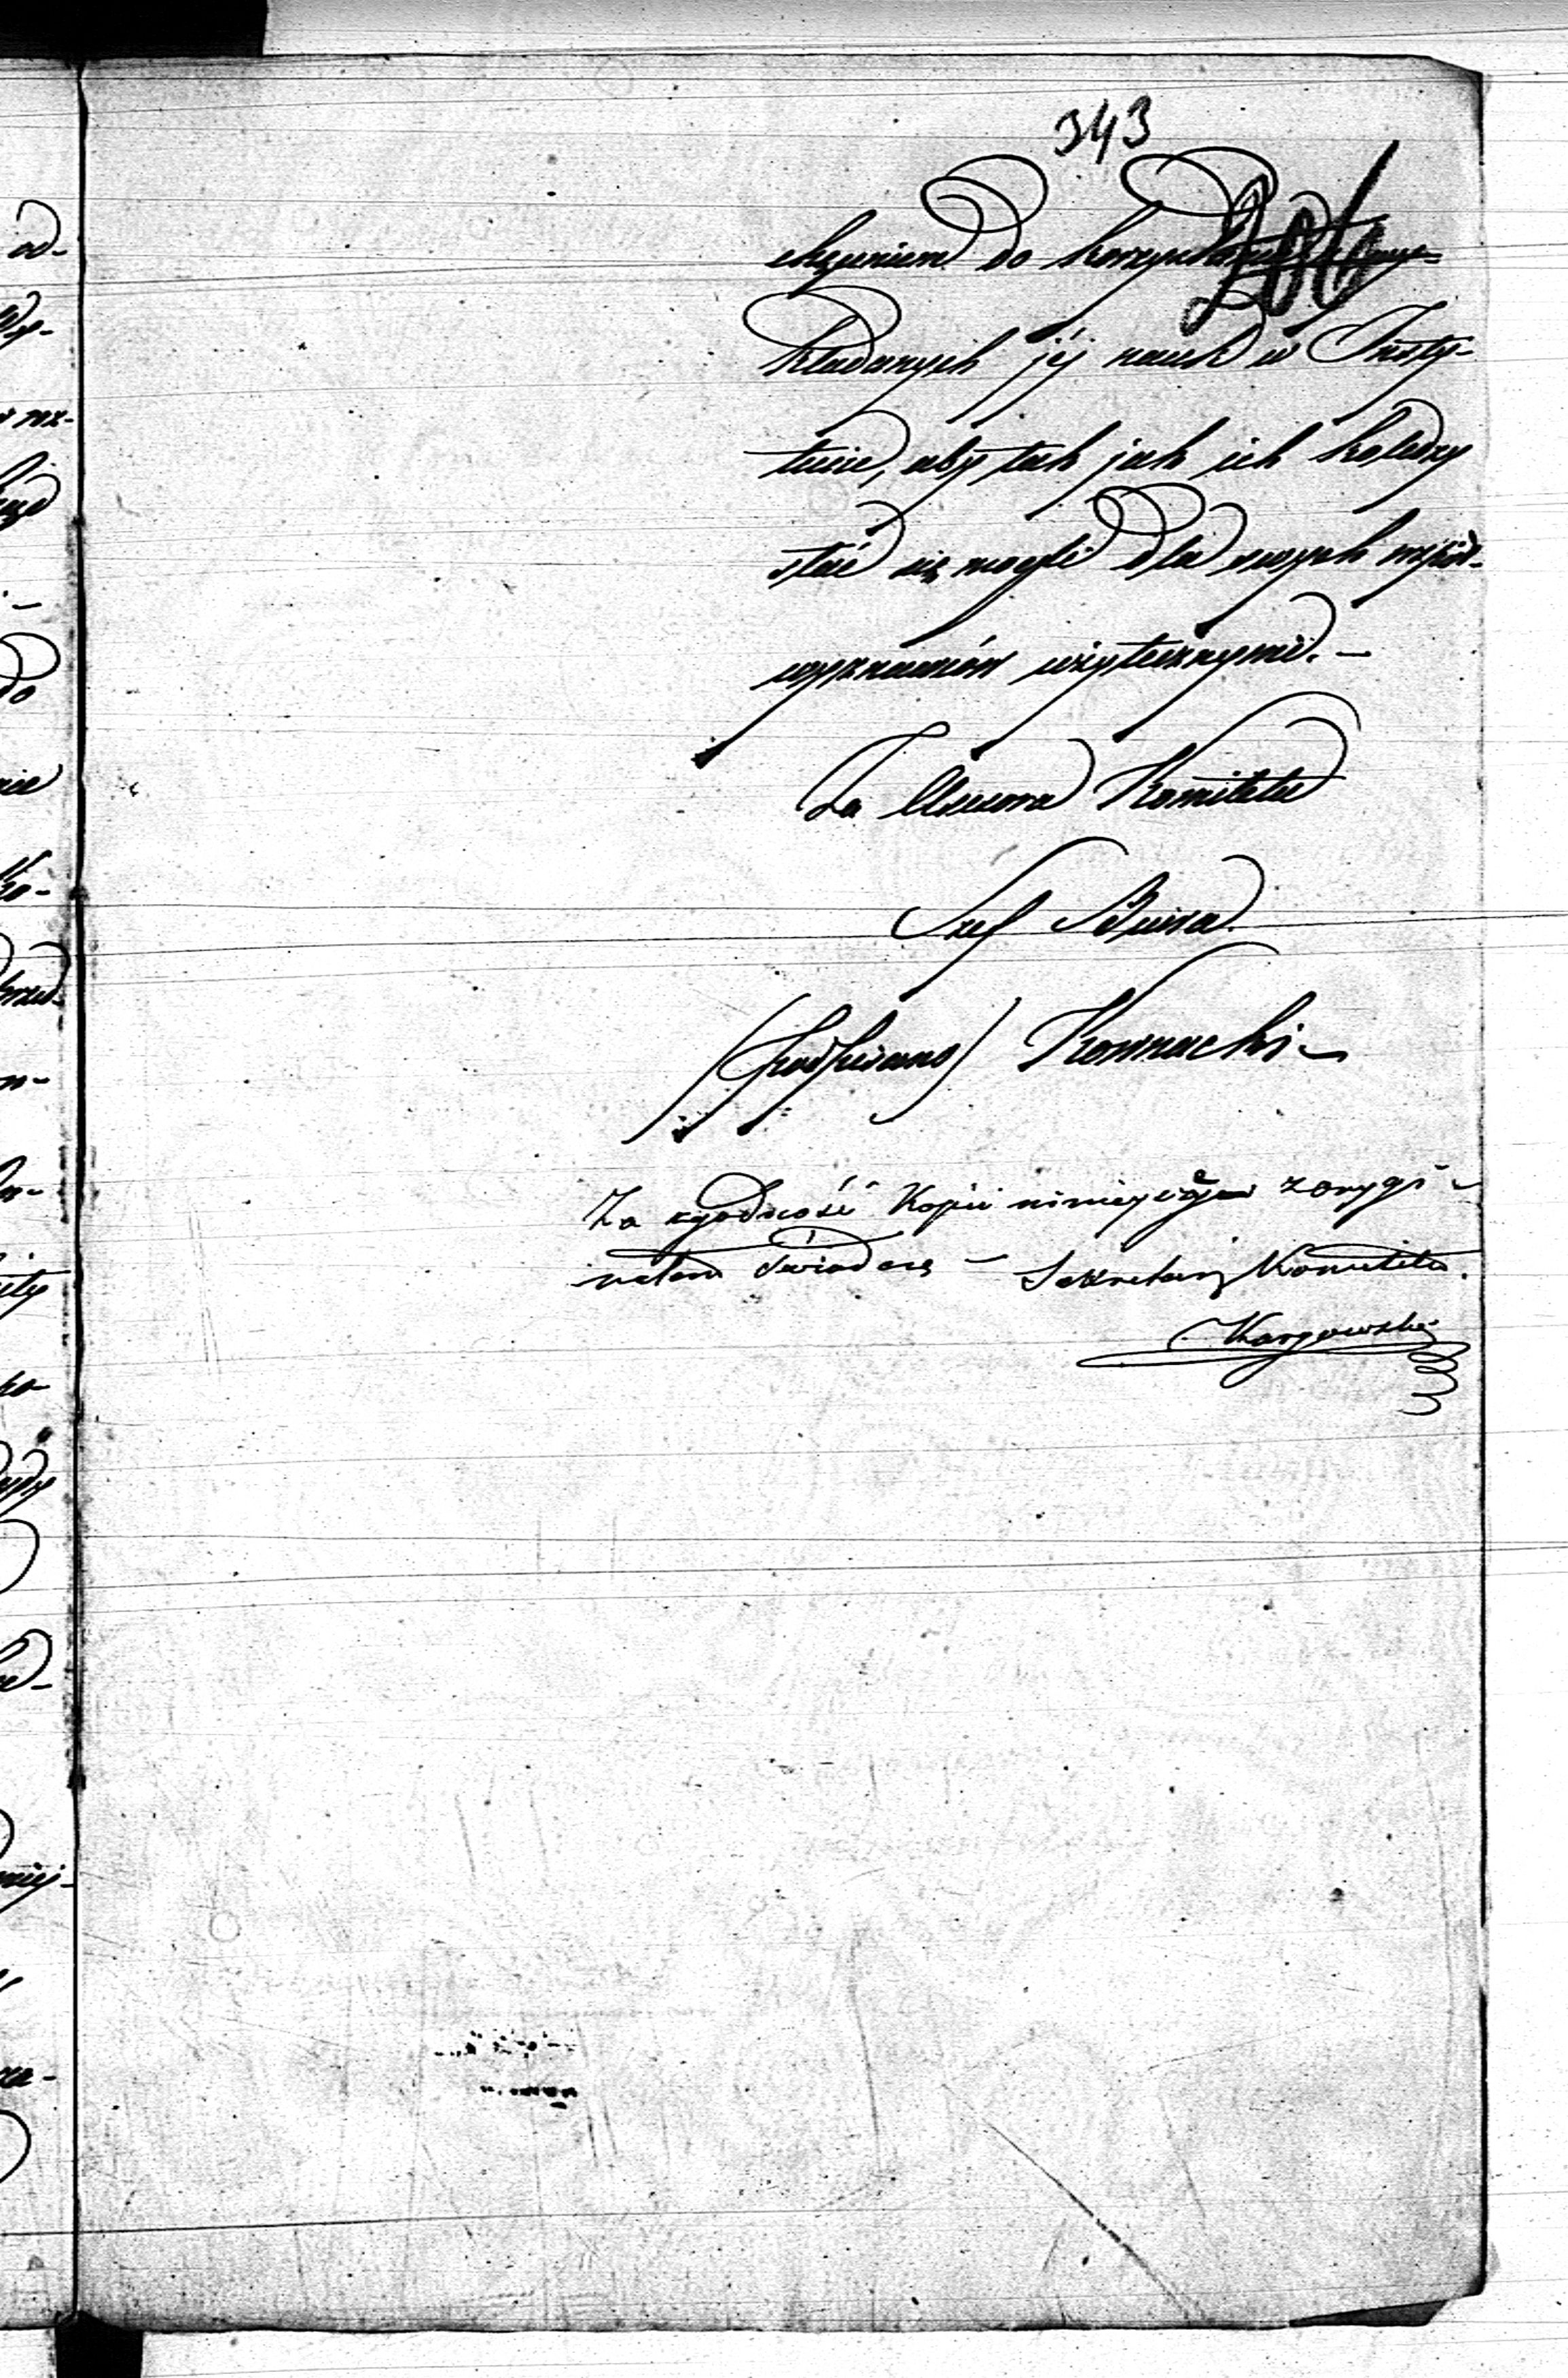 343
206
chęceniem do korzystania z wy=
kładanych jéj nauk w Insty-
tucie, aby tak jak ich koledzy
stać się mogli dla swych współ-
wyznawców użytecznymi. —
Za Członka Komitetu
Szef Biura
(podpisano) Kosmacki
Za zgodność Kopii niniejszéj z orygi-
nałem świadczę — Sekretarz Komitetu.
Kargowski